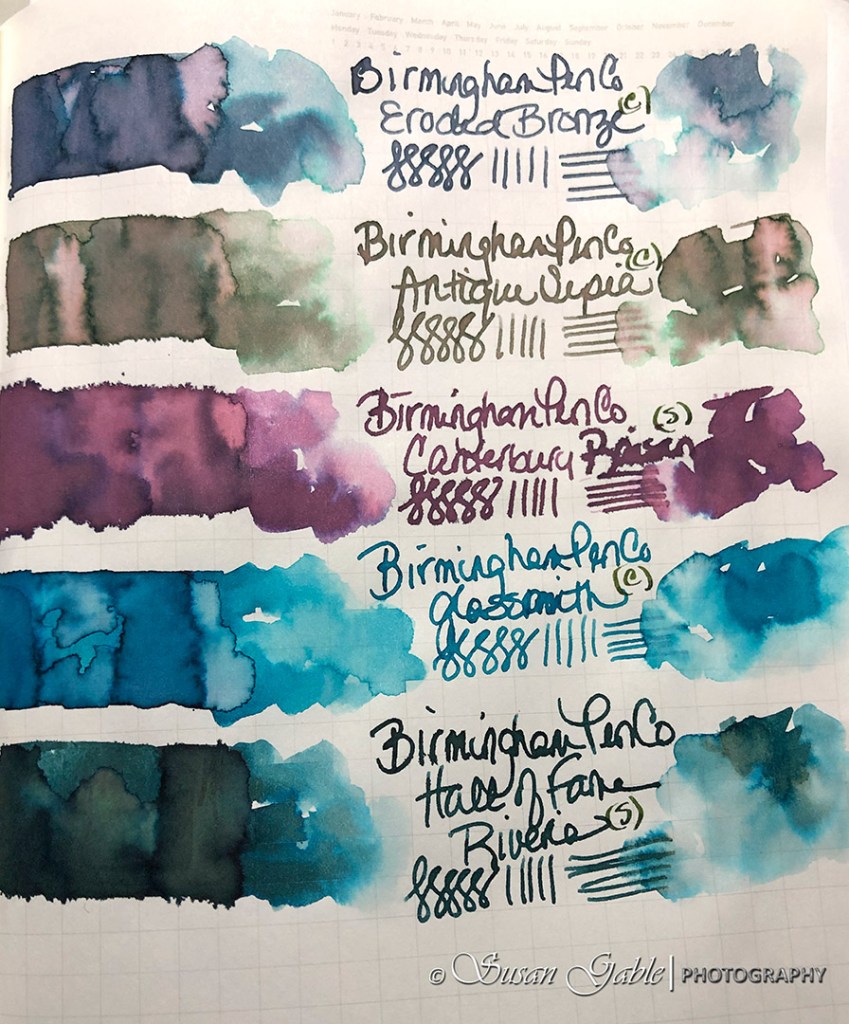 January February March April May June July August September October November December
Monday Tuesday Wednesday Thursday Friday Saturday Sunday
1 2 3 4 5 6 7 8 9 10 11 12 13 14 15 16 17 18 19 20
Birmingham Pen Co
Eroded Bronze (C)
Birmingham Pen Co
Antique Sepia (C)
Birmingham Pen Co.
Canterbury (S)
Birmingham Pen Co
Glassmith (C)
Birmingham Pen Co
Hall of Fame
Riveria (S)
© Susan Gable | PHOTOGRAPHY